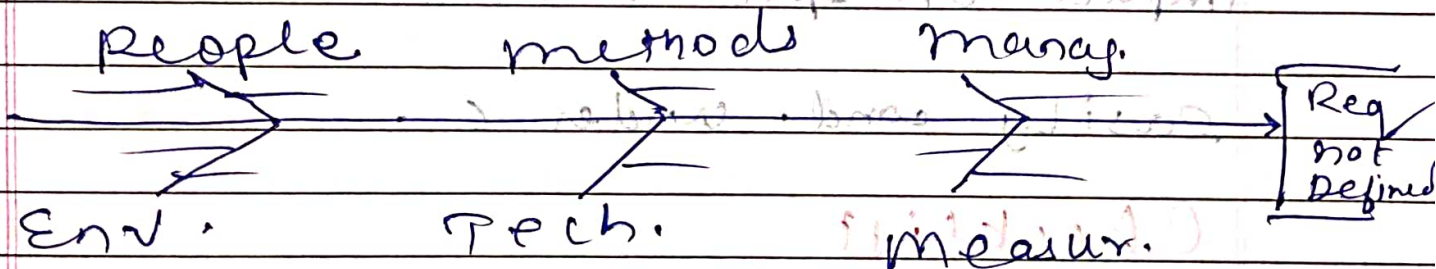 People methods manag.
Req
not
Defined
Env. Tech. Measur.